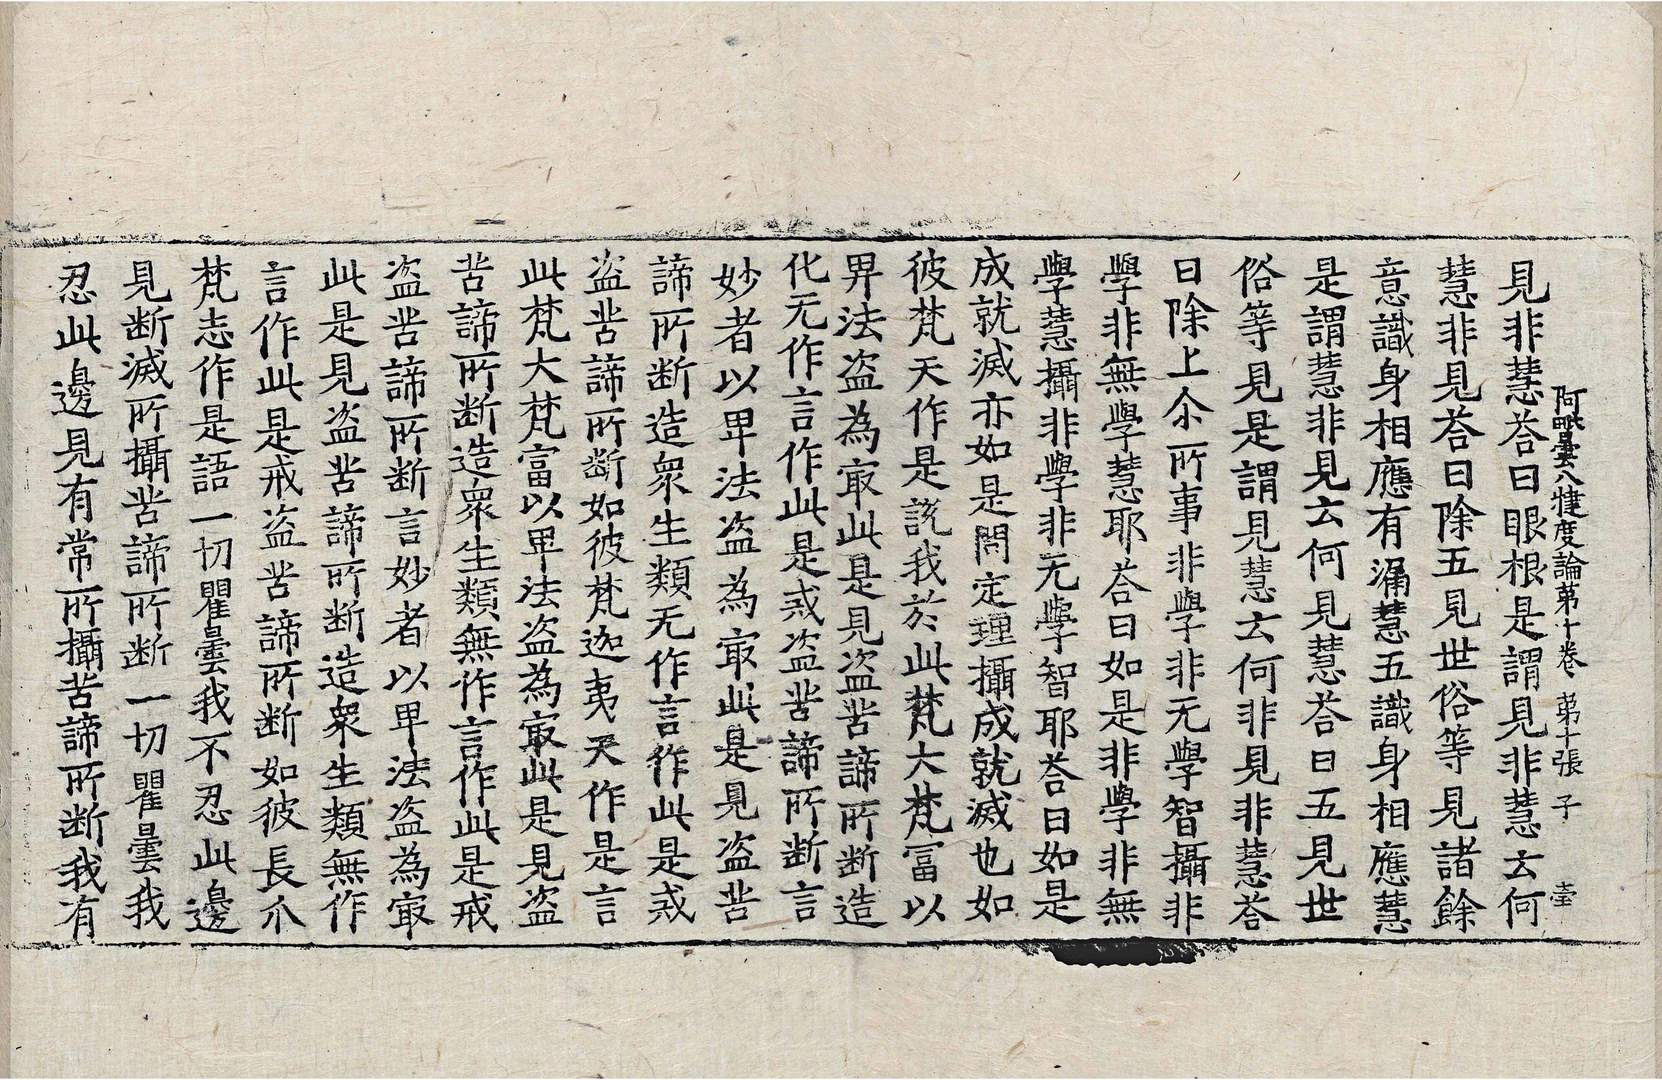 阿毗曇八犍度論第十卷 第十張 子 壹
見非慧荅曰眼根是謂見非慧云何
慧非見荅曰除五見世俗等見諸餘
意識身相應有漏慧五識身相應慧
是謂慧非見云何見慧荅曰五見世
俗等見是謂見慧云何非見非慧荅
曰除上尒所事非學非无學智攝非
學非無學慧耶荅曰如是非學非無
學慧攝非學非无學智耶荅曰如是
成就滅亦如是問定理攝成就滅也如
彼梵天作是說我於此梵大梵冨以
畀法盗為㝡此是見盗苦諦所断造
化无作言作此是戒盗苦諦所断言
妙者以畀法盗為㝡此是見盗苦
諦所断造衆生類无作言作此是戒
盗苦諦所断如彼梵迦夷天作是言
此梵大梵富以畀法盗為㝡此是見盗
苦諦所断造衆生類無作言作此是戒
盗苦諦所断言妙者以畀法盗為㝡
此是見盗苦諦所断造衆生類無作
言作此是戒盗苦諦所断如彼長爪
梵志作是語一切瞿曇我不忍此邊
見断滅所攝苦諦所断一切瞿曇我
忍此邊見有常所攝苦諦所断我有